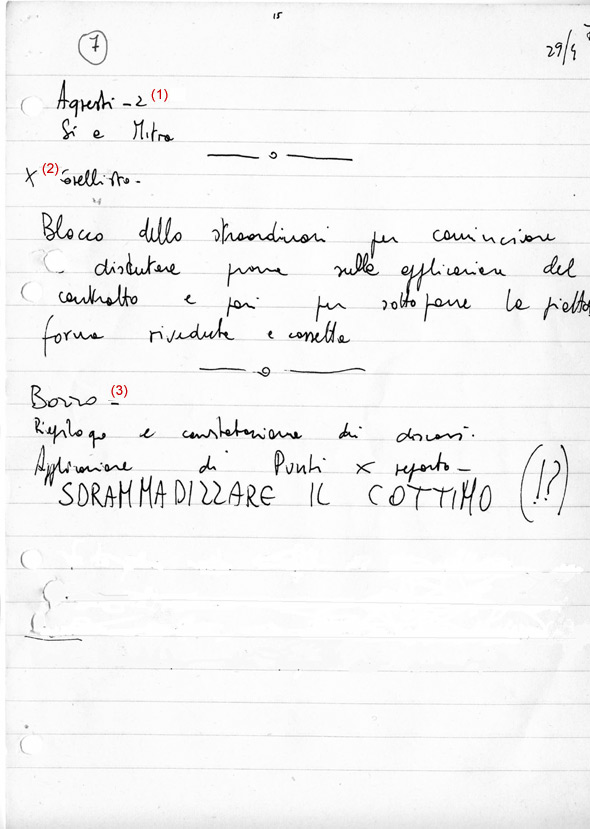 15
7
29/4
Agresti - 2 (1)
Si e Mitra
x (2)
Blocco dello straordinari per cominciare
discutere prima sulla applicazione del
contratto e poi per sottoporre la piatta
forma riveduta e corretta
Bozzo = (3)
Riepilogo e constatazione dei discorsi.
Applicazione di Punti x reparto -
SDRAMMADIZZARE IL COTTIMO (!?)